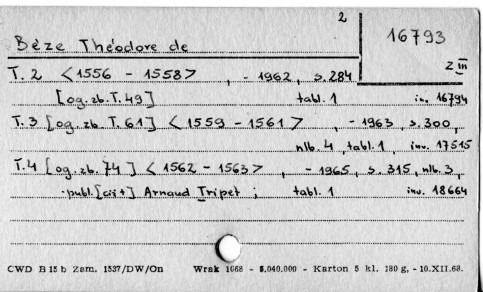 2
16793
Bèze Théodore de
z III
T. 2 <1556 - 1558> , - 1962, s. 284
[og. zb. T. 49] tabl. 1 inv. 16794
T. 3 [og. zb. T. 61] <1559 - 1561> , - 1963, s. 300,
nlb. 4, tabl. 1, inv. 17515
T. 4 [og. zb. 74] <1562 - 1563> , - 1965, s. 315, nlb. 3,
publ. [cit] Arnaud Tripet ; tabl. 1 inv. 18664
CWD B 15 b Zam. 1537/DW/On Wrak 1068 - 5,040.000 - Karton 5 kl. 180 g, - 10.XII.68.